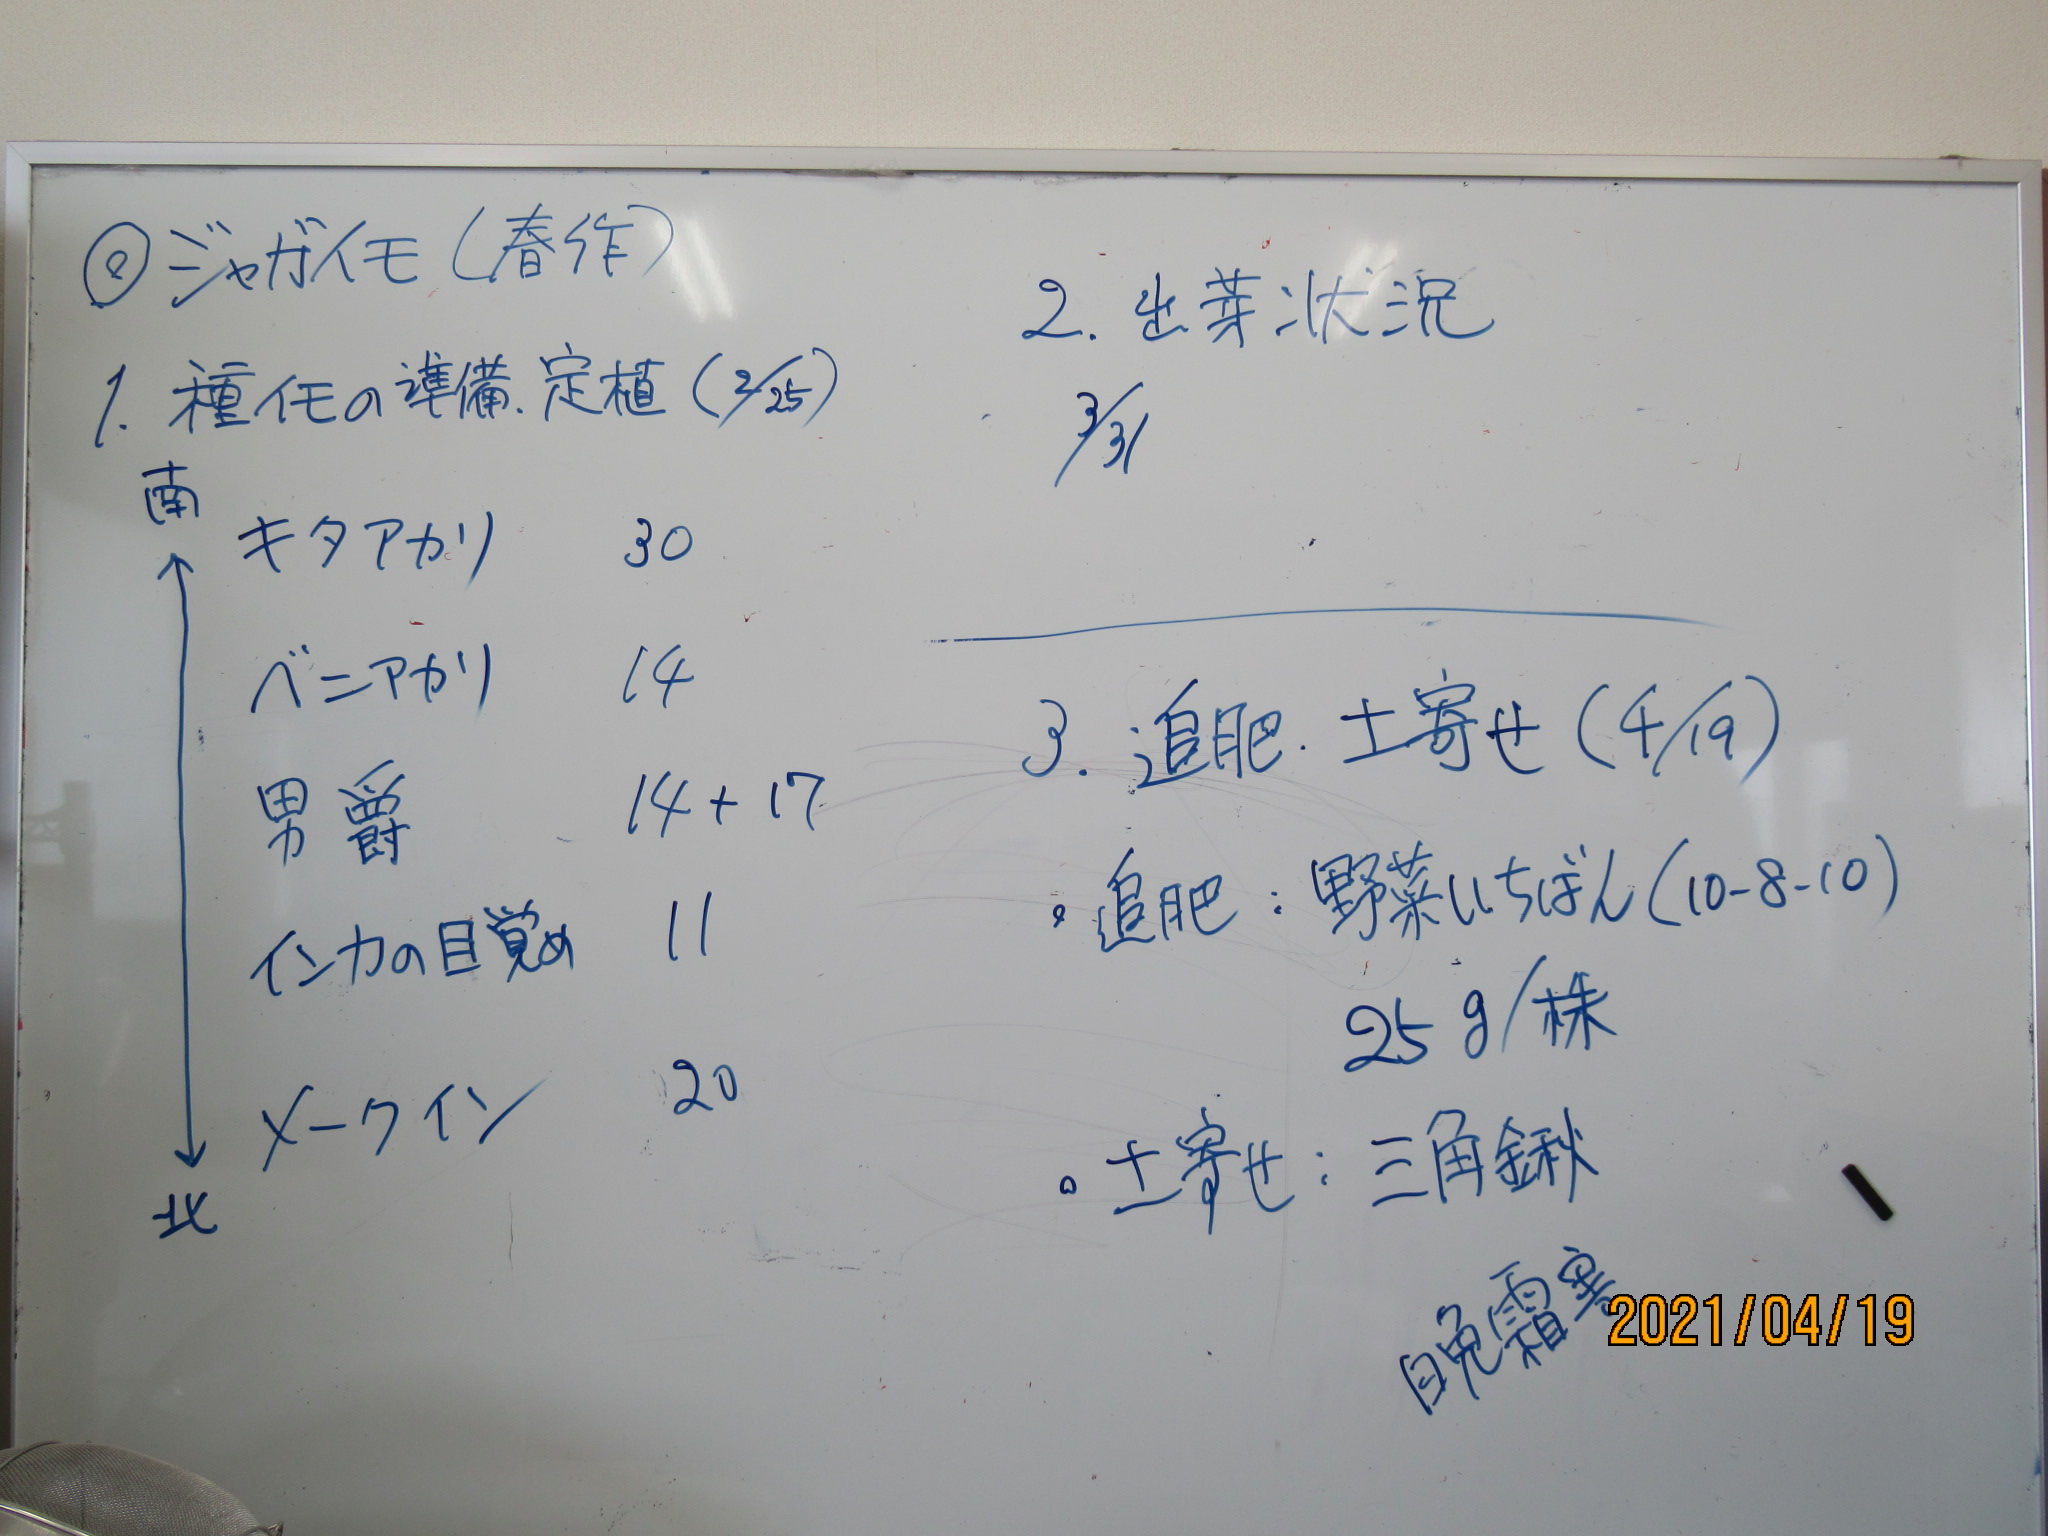 ◎ジャガイモ(春作)
1. 種イモの準備.定植(2/25)
南
キタアカリ 30
ベニアカリ 14
男爵 14+17
インカの目覚め 11
メークイン 20
北
2. 出芽状況
3/31
3. 追肥.土寄せ(4/19)
・追肥:野菜いちばん(10-8-10)
25g/株
・土寄せ:三角鍬
晩霜害
2021/04/19